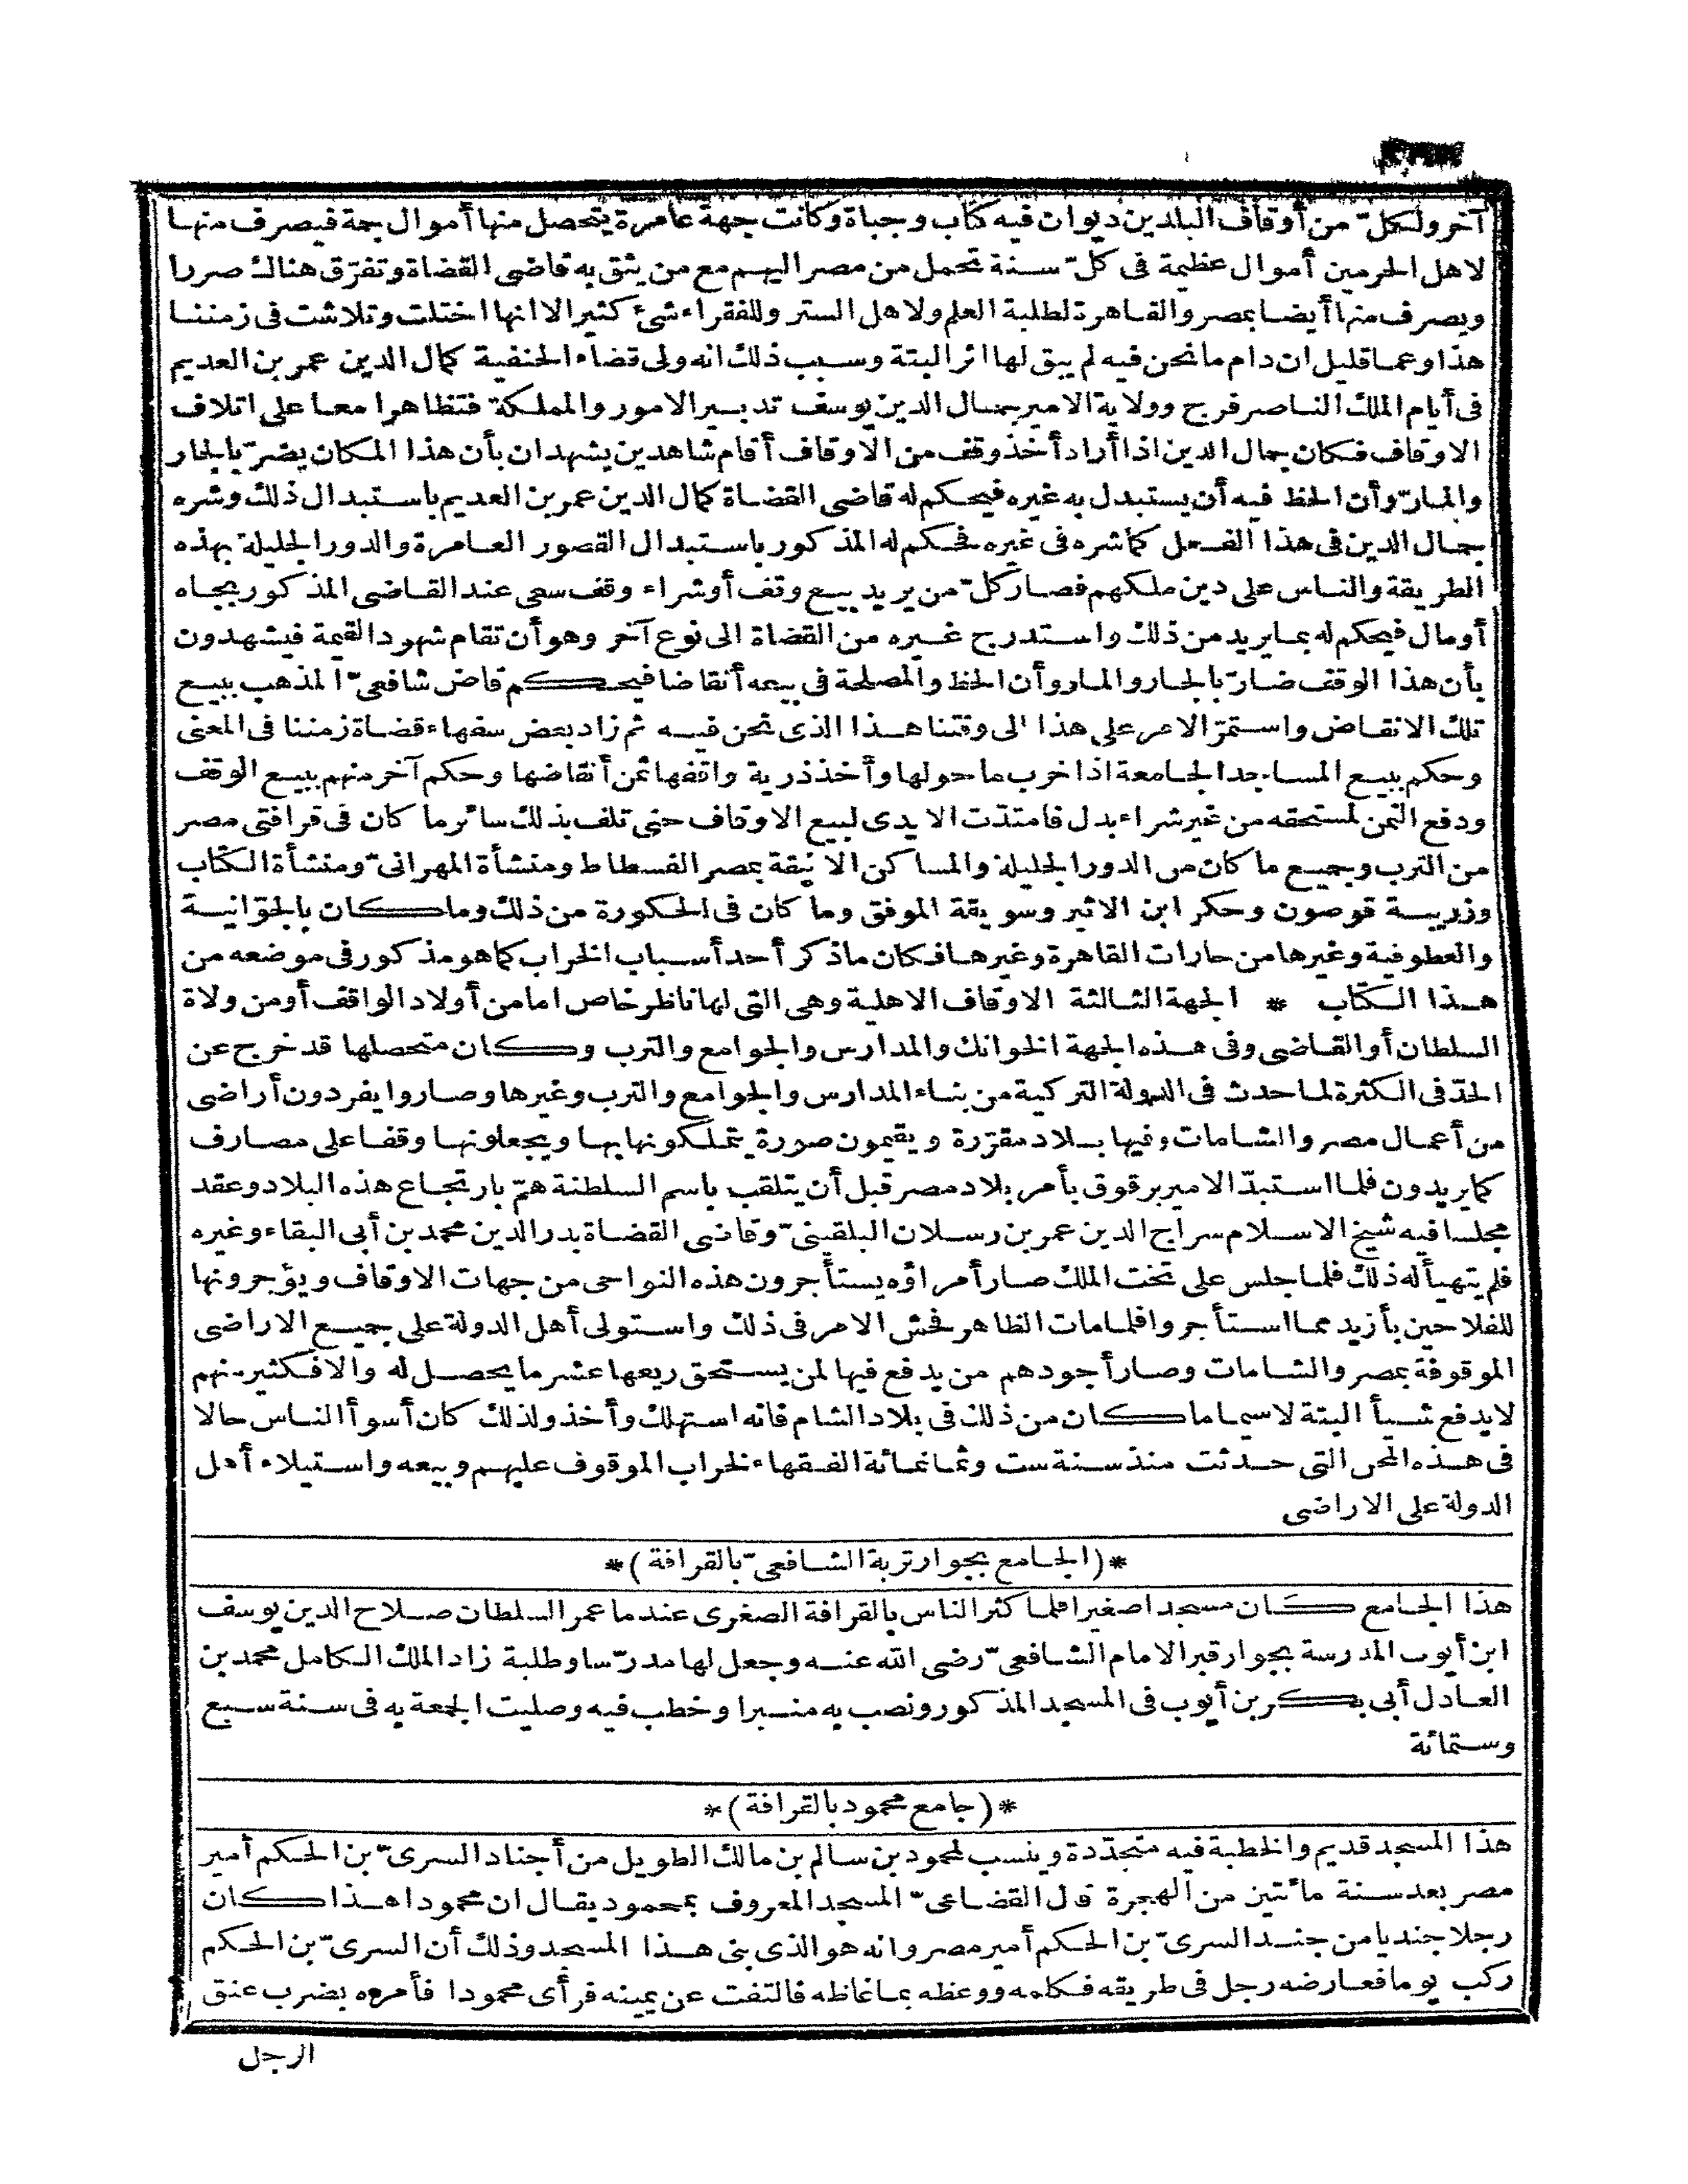 آخر ولكلّ من أوقاف البلدين ديوان فيه كتاب وجباة وكانت جهة عامرة يتحصل منها أموال جمة فيصرف منها
لاهل الحرمين أموال عظيمة فى كلّ سنة تحمل من مصر اليهم مع من يثق به قاضى القضاة وتفرّق هناك صررا
ويصرف منها أيضا بمصر والقاهرة لطلبة العلم ولاهل الستر وللفقراء شئ كثير الا انها اختلت وتلاشت فى زمننا
هذا وعما قليل ان دام ما نحن فيه لم يبق لها اثر البتة وسبب ذلك انه ولى قضاء الحنفية كمال الدين عمر بن العديم
فى أيام الملك الناصر فرج وولاية الامير جمال الدين يوسف تدبير الامور والمملكة فتظاهرا معا على اتلاف
الاوقاف فكان جمال الدين اذا أراد أخذ وقف من الاوقاف أقام شاهدين يشهدان بأن هذا المكان يضرّ بالجار
والمارّ وأن الحظ فيه أن يستبدل به غيره فيحكم له قاضى القضاة كمال الدين عمر بن العديم باستبدال ذلك وشره
جمال الدين فى هذا الفعل كما شره فى غيره فحكم له المذكور باستبدال القصور العامرة والدور الجليلة بهذه
الطريقة والناس على دين ملكهم فصار كلّ من يريد بيع وقف أو شراء وقف سعى عند القاضى المذكور بجاه
أو مال فيحكم له بما يريد من ذلك واستدرج غيره من القضاة الى نوع آخر وهو أن تقام شهود القيمة فيشهدون
بأن هذا الوقف ضارّ بالجار والمار وأن الحظ والمصلحة فى بيعه أنقاضا فيحكم قاض شافعىّ المذهب ببيع
تلك الانقاض واستمرّ الامر على هذا الى وقتنا هذا الذى نحن فيه ثم زاد بعض سفهاء قضاة زمننا فى المعنى
وحكم ببيع المساجد الجامعة اذا خرب ما حولها وأخذ ذرية واقفها ثمن أنقاضها وحكم آخر منهم ببيع الوقف
ودفع الثمن لمستحقه من غير شراء بدل فامتدّت الايدى لبيع الاوقاف حتى تلف بذلك سائر ما كان فى قرافتى مصر
من الترب وجميع ما كان من الدور الجليلة والمساكن الانيقة بمصر الفسطاط ومنشأة المهرانىّ ومنشأة الكتاب
وزريبة قوصون وحكر ابن الاثير وسويقة الموفق وما كان فى الحكورة من ذلك وما كان بالجوّانية
والعطوفية وغيرها من حارات القاهرة وغيرها فكان ما ذكر أحد أسباب الخراب كما هو مذكور فى موضعه من
هذا الكتاب * الجهة الثالثة الاوقاف الاهلية وهى التى لها ناظر خاص اما من أولاد الواقف أو من ولاة
السلطان أو القاضى وفى هذه الجهة الخوانك والمدارس والجوامع والترب وكان متحصلها قد خرج عن
الحدّ فى الكثرة لما حدث فى الدولة التركية من بناء المدارس والجوامع والترب وغيرها وصاروا يفردون أراضى
من أعمال مصر والشامات وفيها بلاد مقرّرة ويقيمون صورة يتملكونها بها ويجعلونها وقفا على مصارف
كما يريدون فلما استبدّ الامير برقوق بأمر بلاد مصر قبل أن يتلقب باسم السلطنة همّ بارتجاع هذه البلاد وعقد
مجلسا فيه شيخ الاسلام سراج الدين عمر بن رسلان البلقينىّ وقاضى القضاة بدر الدين محمد بن أبى البقاء وغيره
فلم يتهيأ له ذلك فلما جلس على تخت الملك صار أمراؤه يستأجرون هذه النواحى من جهات الاوقاف ويؤجرونها
للفلاحين بأزيد مما استأجروا فلما مات الظاهر فحش الامر فى ذلك واستولى أهل الدولة على جميع الاراضى
الموقوفة بمصر والشامات وصار أجودهم من يدفع فيها لمن يستحق ريعها عشر ما يحصل له والا فكثير منهم
لا يدفع شيأ البتة لاسيما ما كان من ذلك فى بلاد الشام فانه استهلك وأخذ ولذلك كان أسوأ الناس حالا
فى هذه المحن التى حدثت منذ سنة ست وثمانمائة الفقهاء لخراب الموقوف عليهم وبيعه واستيلاء أهل
الدولة على الاراضى
*(الجامع بجوار تربة الشافعىّ بالقرافة)*
هذا الجامع كان مسجدا صغيرا فلما كثر الناس بالقرافة الصغرى عندما عمر السلطان صلاح الدين يوسف
ابن أيوب المدرسة بجوار قبر الامام الشافعىّ رضى الله عنه وجعل لها مدرّسا وطلبة زاد الملك الكامل محمد بن
العادل أبى بكر بن أيوب فى المسجد المذكور ونصب به منبرا وخطب فيه وصليت الجمعة به فى سنة سبع
وستمائة
*(جامع محمود بالقرافة)*
هذا المسجد قديم والخطبة فيه متجدّدة وينسب لمحمود بن سالم بن مالك الطويل من أجناد السرىّ بن الحكم أمير
مصر بعد سنة مائتين من الهجرة قال القضاعىّ المسجد المعروف بمحمود يقال ان محمودا هذا كان
رجلا جنديا من جند السرىّ بن الحكم أمير مصر وانه هو الذى بنى هذا المسجد وذلك أن السرىّ بن الحكم
ركب يوما فعارضه رجل فى طريقه فكلمه ووعظه بما غاظه فالتفت عن يمينه فرأى محمودا فأمره بضرب عنق
الرجل